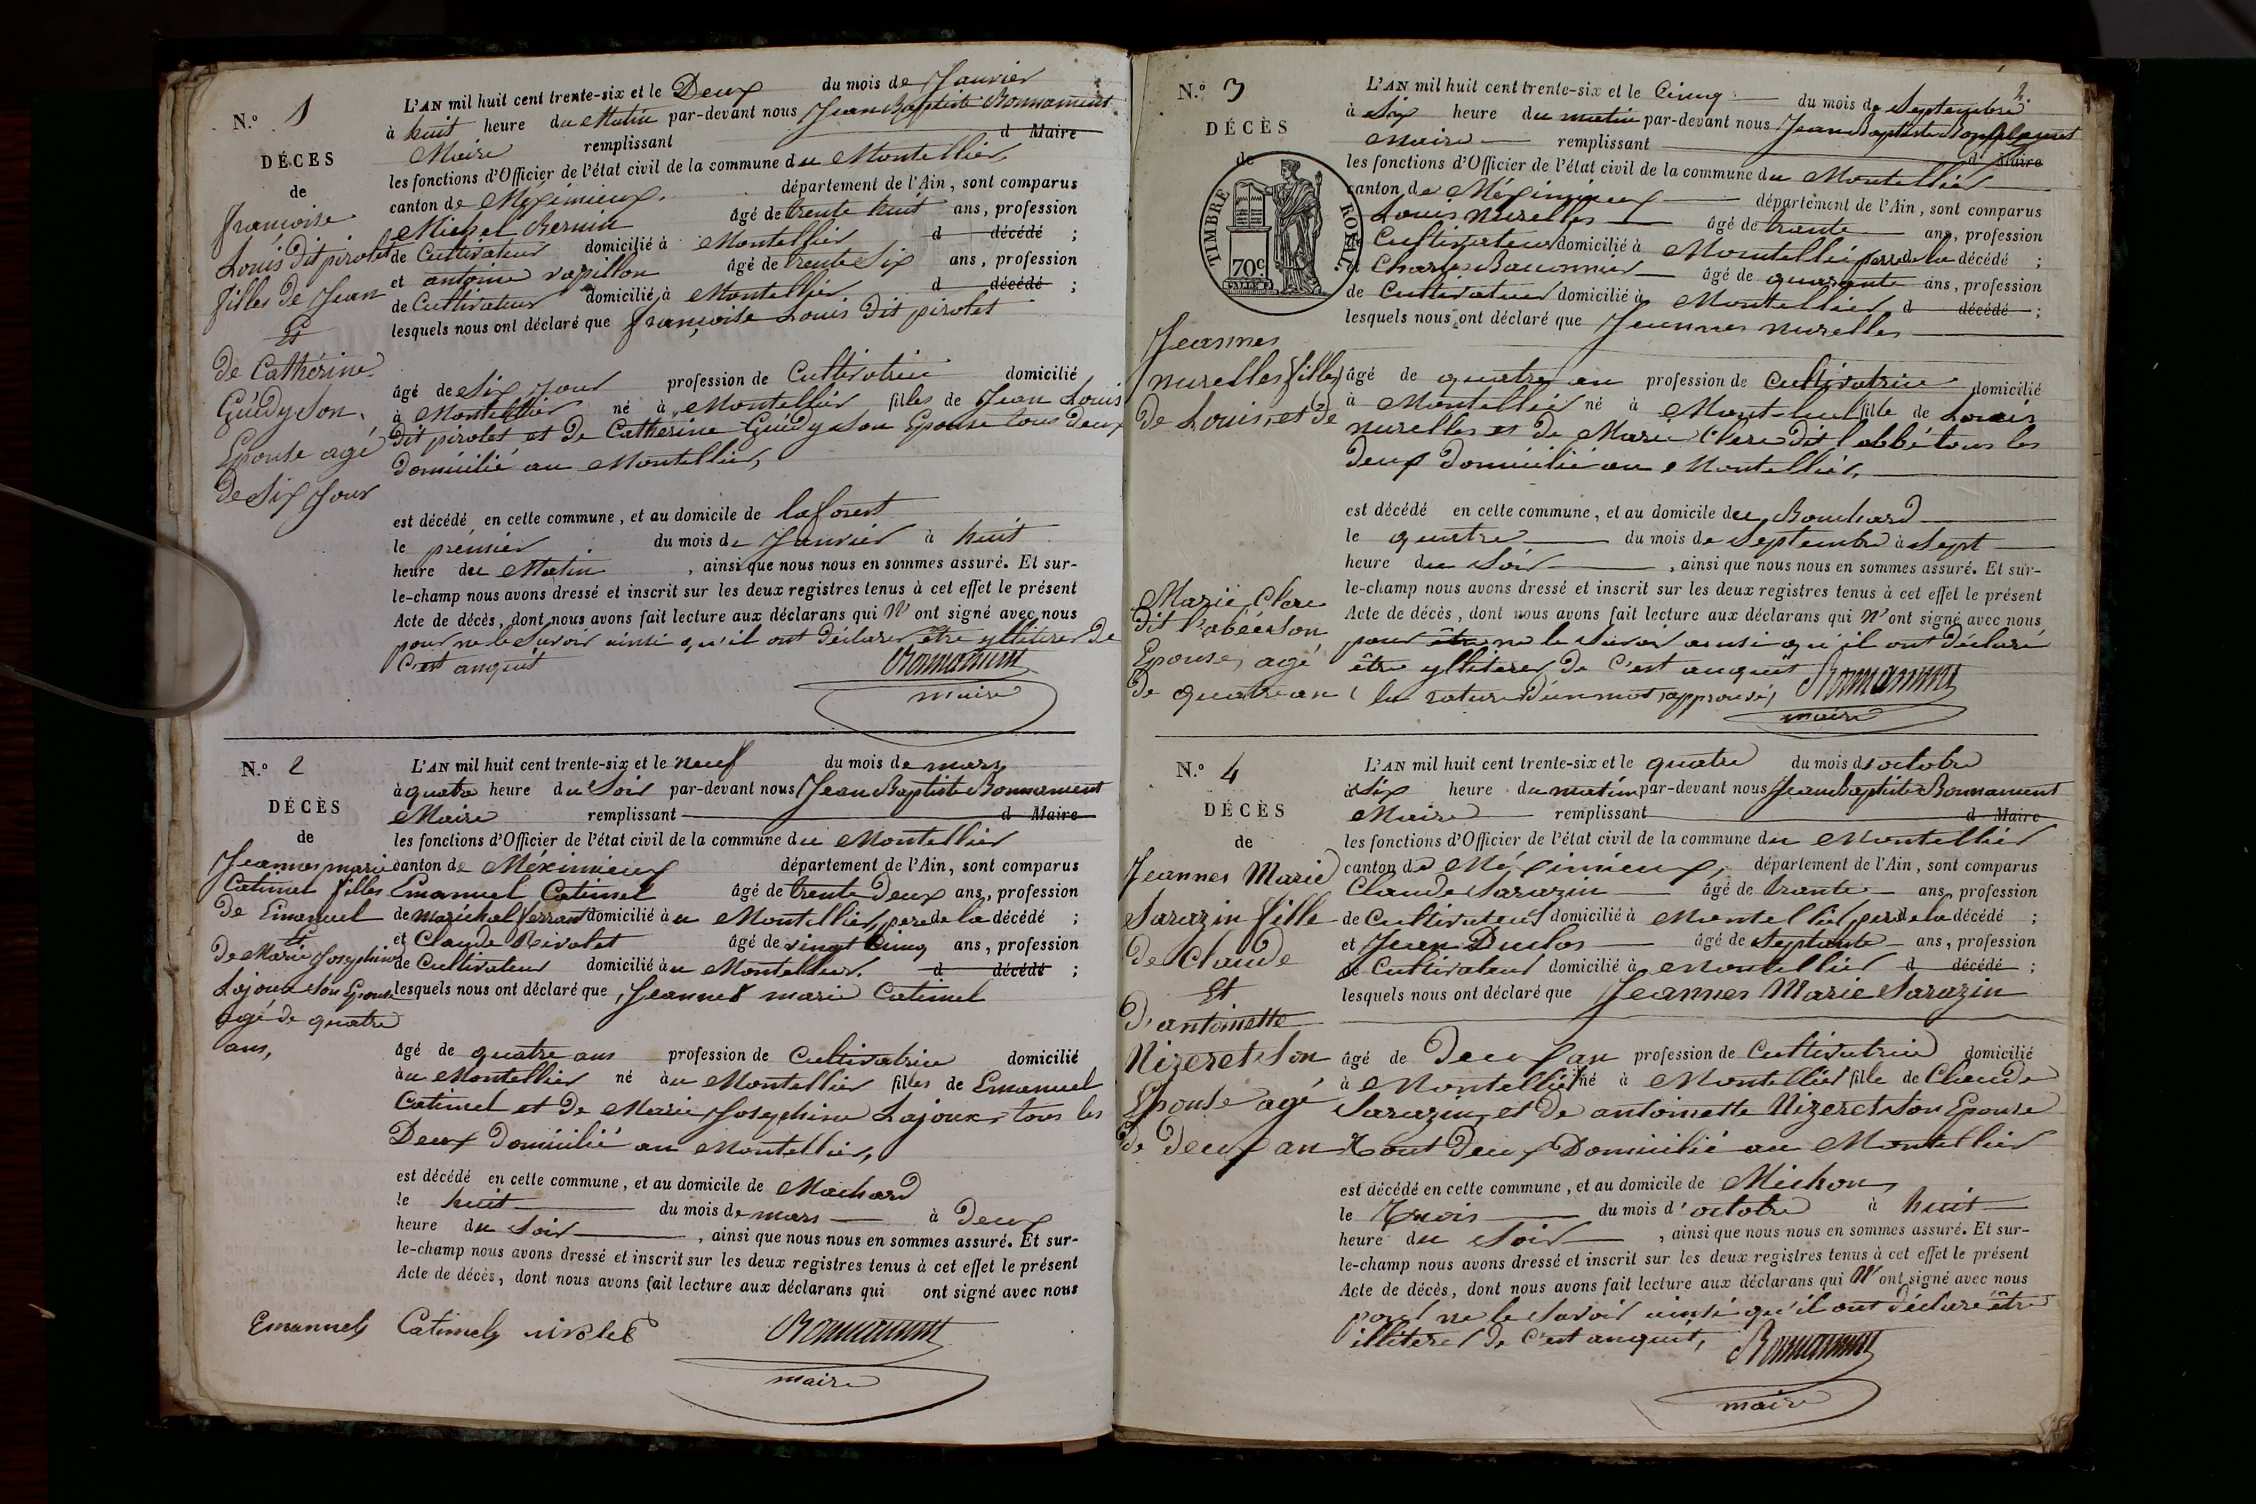 N.° 1
DÉCES
de
françoise
Louis dit pirolet
filles de Jean
Et
de Cathérine
Guédy son
Epouse agé
de Six Jour
L'AN mil huit cent trente-six et le Deux du mois de Janvier
à huit heure du Matin par-devant nous Jean Baptiste Bonnament
Maire remplissant d Maire
les fonctions d'Officier de l'état civil de la commune du Montellier
canton de Méximieux. département de l'Ain, sont comparus
Michel Bernin âgé de trente huit ans, profession
de Cultivateur domicilié à Montellier d décédé ;
et antoine rapillon âgé de trente Six ans, profession
de Cultivateur domicilié à Montellier d décédé ;
lesquels nous ont déclaré que françoise Louis dit pirolet
âgé de Six Jour profession de Cultivatrice domicilié
à Montellier né à Montellier filles de Jean Louis
dit pirolet et de Catherine Guédy son Epouse tous deux
Domicilié au Montellier,
est décédé en cette commune, et au domicile de laforest
le prémier du mois de Janvier à huit
heure du Matin , ainsi que nous nous en sommes assuré. Et sur-
le-champ nous avons dressé et inscrit sur les deux registres tenus à cet effet le présent
Acte de décès, dont nous avons fait lecture aux déclarans qui N' ont signé avec nous
pour ne le Savoir ainsi qu'il ont déclarer être ylliterer de
C'est anquit
Bonnament
maire
N.° 2
DÉCÈS
de
Jeannes marie
Catimel filles
de Emanuel
Et
de Marie Josephine
Lajoux son Epouse
agé de quatre
ans,
L'AN mil huit cent trente-six et le neuf du mois de mars
à quatre heure du Soir par-devant nous Jean Baptiste Bonnament
Maire remplissant d Maire
les fonctions d'Officier de l'état civil de la commune du Montellier
canton de Méximieux département de l'Ain, sont comparus
Emanuel Catimel âgé de trente Deux ans, profession
de maréchal ferrant domicilié à u Montellier, pere de la décédé ;
et Claude Rivolet âgé de vingt Cinq ans, profession
de Cultivateur domicilié à u Montellier. d décédé ;
lesquels nous ont déclaré que, Jeannes marie Catimel
âgé de quatre ans profession de Cultivatrice domicilié
à u Montellier né à u Montellier filles de Emanuel
Catimel et de Marie Josephine Lajoux tous les
Deux Domicilié au Montellier,
est décédé en cette commune, et au domicile de Machard
le huit du mois de mars à Deux
heure du Soir , ainsi que nous nous en sommes assuré. Et sur-
le-champ nous avons dressé et inscrit sur les deux registres tenus à cet effet le présent
Acte de décès, dont nous avons fait lecture aux déclarans qui ont signé avec nous
Emanuel Catimel rivolet Bonnament
maire
2.
N.° 3
DÉCÈS
de
TIMBRE ROYAL.
70c.
Jeannes
nurelles filles
de Louis, et de
Marie Clere
dit l'abé son
Epouse, agé
de quatre an
L'AN mil huit cent trente-six et le Cinq du mois de Septembre
à Six heure du matin par-devant nous Jean Baptiste Bonnament
Maire remplissant d Maire
les fonctions d'Officier de l'état civil de la commune du Montellier
canton de Méximieux département de l'Ain, sont comparus
Louis Nurelles âgé de trente ans, profession
de Cultivateur domicilié à Montellier pere de la décédé ;
et Charles Baconnier âgé de quarante ans, profession
de Cultivateur domicilié à Montellier d décédé ;
lesquels nous ont déclaré que Jeannes nurelles
âgé de quatre an profession de Cultivatrice domicilié
à Montellier né à Mont-luel fille de Louis
nurelles et de Marie Clere dit l'abbé tous les
Deux Domicilié au Montellier,
est décédé en cette commune, et au domicile du Bouchard
le quatre du mois de Septembre à Sept
heure du Soir , ainsi que nous nous en sommes assuré. Et sur-
le-champ nous avons dressé et inscrit sur les deux registres tenus à cet effet le présent
Acte de décès, dont nous avons fait lecture aux déclarans qui N' ont signé avec nous
pour être ne le Savoir ainsi qu'il ont déclaré
être ylliterer de C'est anquit
(la rature d'un mot approuvé) Bonnament
maire
N.° 4
DÉCÈS
de
Jeannes Marie
Sarazin fille
de Claude
Et
d'antoinette
Nizeret son
Epouse agé
de deux an
L'AN mil huit cent trente-six et le quatre du mois d'octobre
à Six heure du matin par-devant nous Jean Baptiste Bonnament
Maire remplissant d Maire
les fonctions d'Officier de l'état civil de la commune du Montellier
canton de Méximieux, département de l'Ain, sont comparus
Claude Sarazin âgé de trente ans, profession
de Cultivateur domicilié à Montellier pere de la décédé ;
et Jean Duclos âgé de Septante ans, profession
de Cultivateur domicilié à Montellier d décédé ;
lesquels nous ont déclaré que Jeannes Marie Sarazin
âgé de Deux an profession de Cultivatrice domicilié
à Montellier né à Montellier fille de Claude
Sarazin, et de antoinette Nizeret son Epouse
Tout Deux Domicilié au Montellier
est décédé en cette commune, et au domicile de Michon
le Trois du mois d'octobre à huit
heure du Soir , ainsi que nous nous en sommes assuré. Et sur-
le-champ nous avons dressé et inscrit sur les deux registres tenus à cet effet le présent
Acte de décès, dont nous avons fait lecture aux déclarans qui N' ont signé avec nous
pour ne le Savoir ainsi qu'il ont déclaré être
illiterer de C'est anquit,
Bonnament
maire